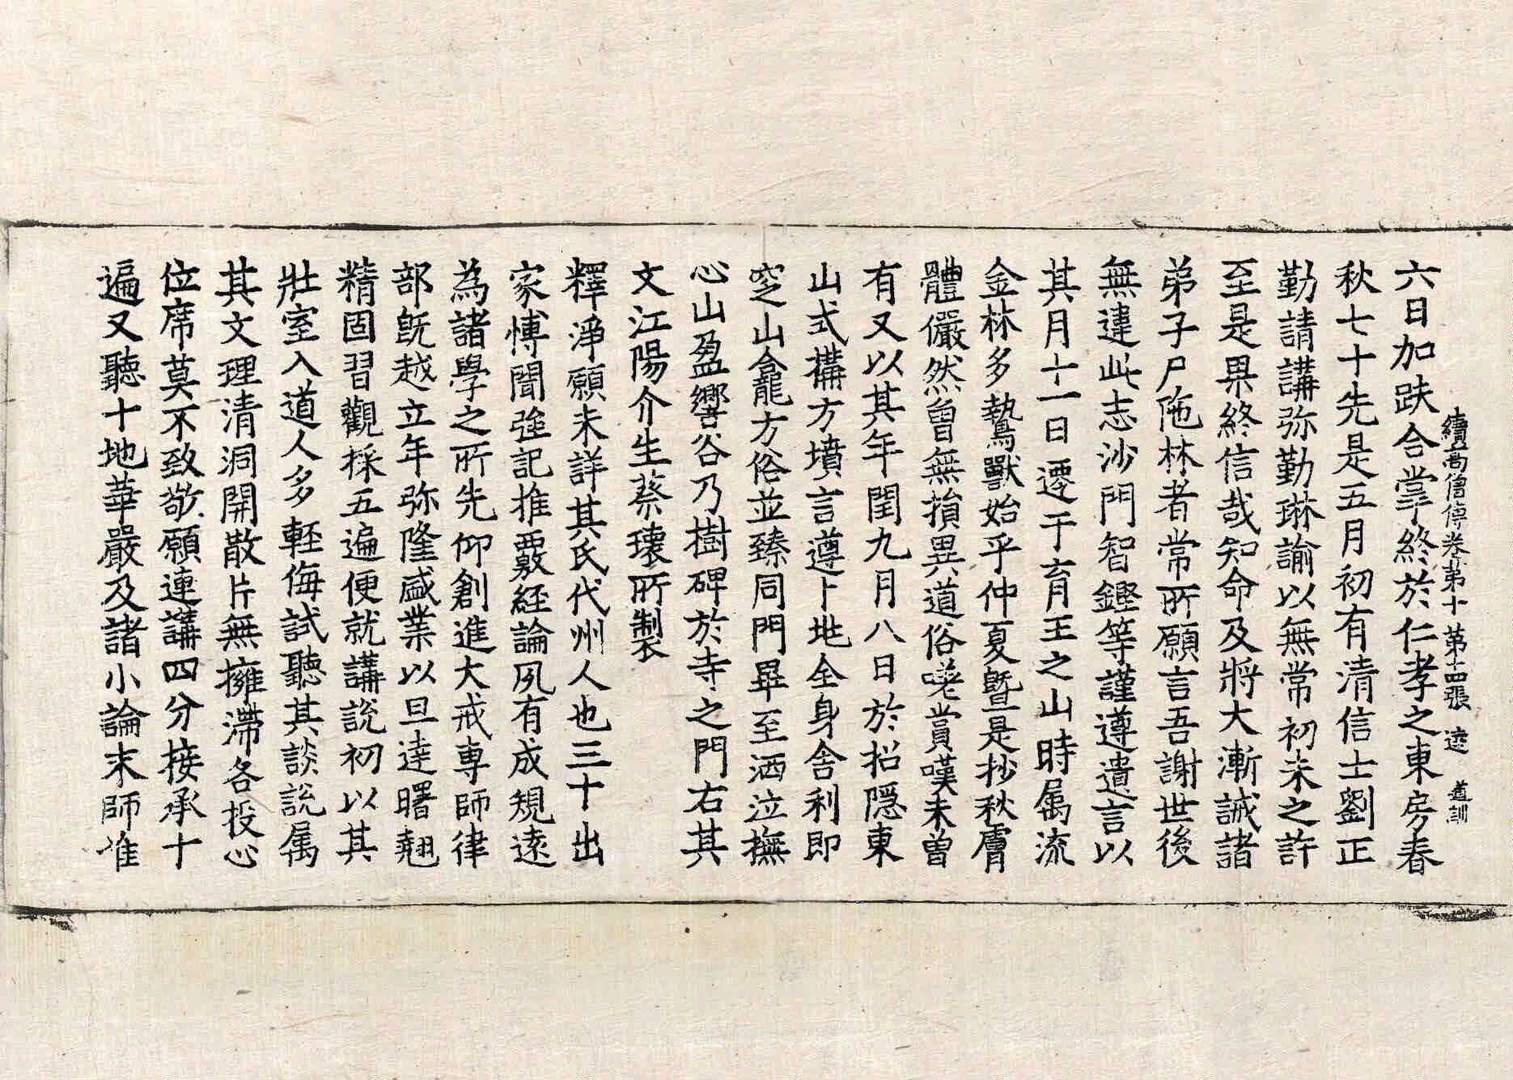 續高僧傳卷第十 第十四張 達 道訓
六日加趺合掌終於仁孝之東房春
秋七十先是五月初有清信士劉正
勤請講弥勤琳諭以無常初未之許
至是果終信哉知命及將大漸誡諸
弟子尸陁林者常所願言吾謝世後
無違此志沙門智鏗等謹遵遺言以
其月十一日遷于育王之山時属流
金林多鷙獸始乎仲夏曁是抄秋膚
體儼然曾無損異道俗嗟賞嘆未曾
有又以其年閏九月八日於招隱東
山式構方墳言遵卜兆全身舍利即
窆山龕龍方俗並臻同門畢至洒泣撫
心山盈響谷乃樹碑於寺之門右其
文江陽介生蔡瓌所製
釋淨願未詳其氏代州人也三十出
家博聞強記推覈經論夙有成規遠
為諸學之所先仰創進大戒專師律
部旣越立年弥隆盛業以旦達曙翹
精固習觀採五遍便就講說初以其
壯室入道人多輕侮試聽其談說属
其文理清洞開散片無擁滯各投心
位席莫不致敬願連講四分接承十
遍又聽十地華嚴及諸小論末師准